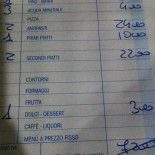 ACQUA MINERALE
PIZZA
2 ANTIPASTI 24,00
1 PRIMI PIATTI 15,00
2 SECONDI PIATTI 22,00
CONTORNI
FORMAGGI
FRUTTA
1 DOLCI - DESSERT
CAFFÈ - LIQUORI
MENÙ A PREZZO FISSO